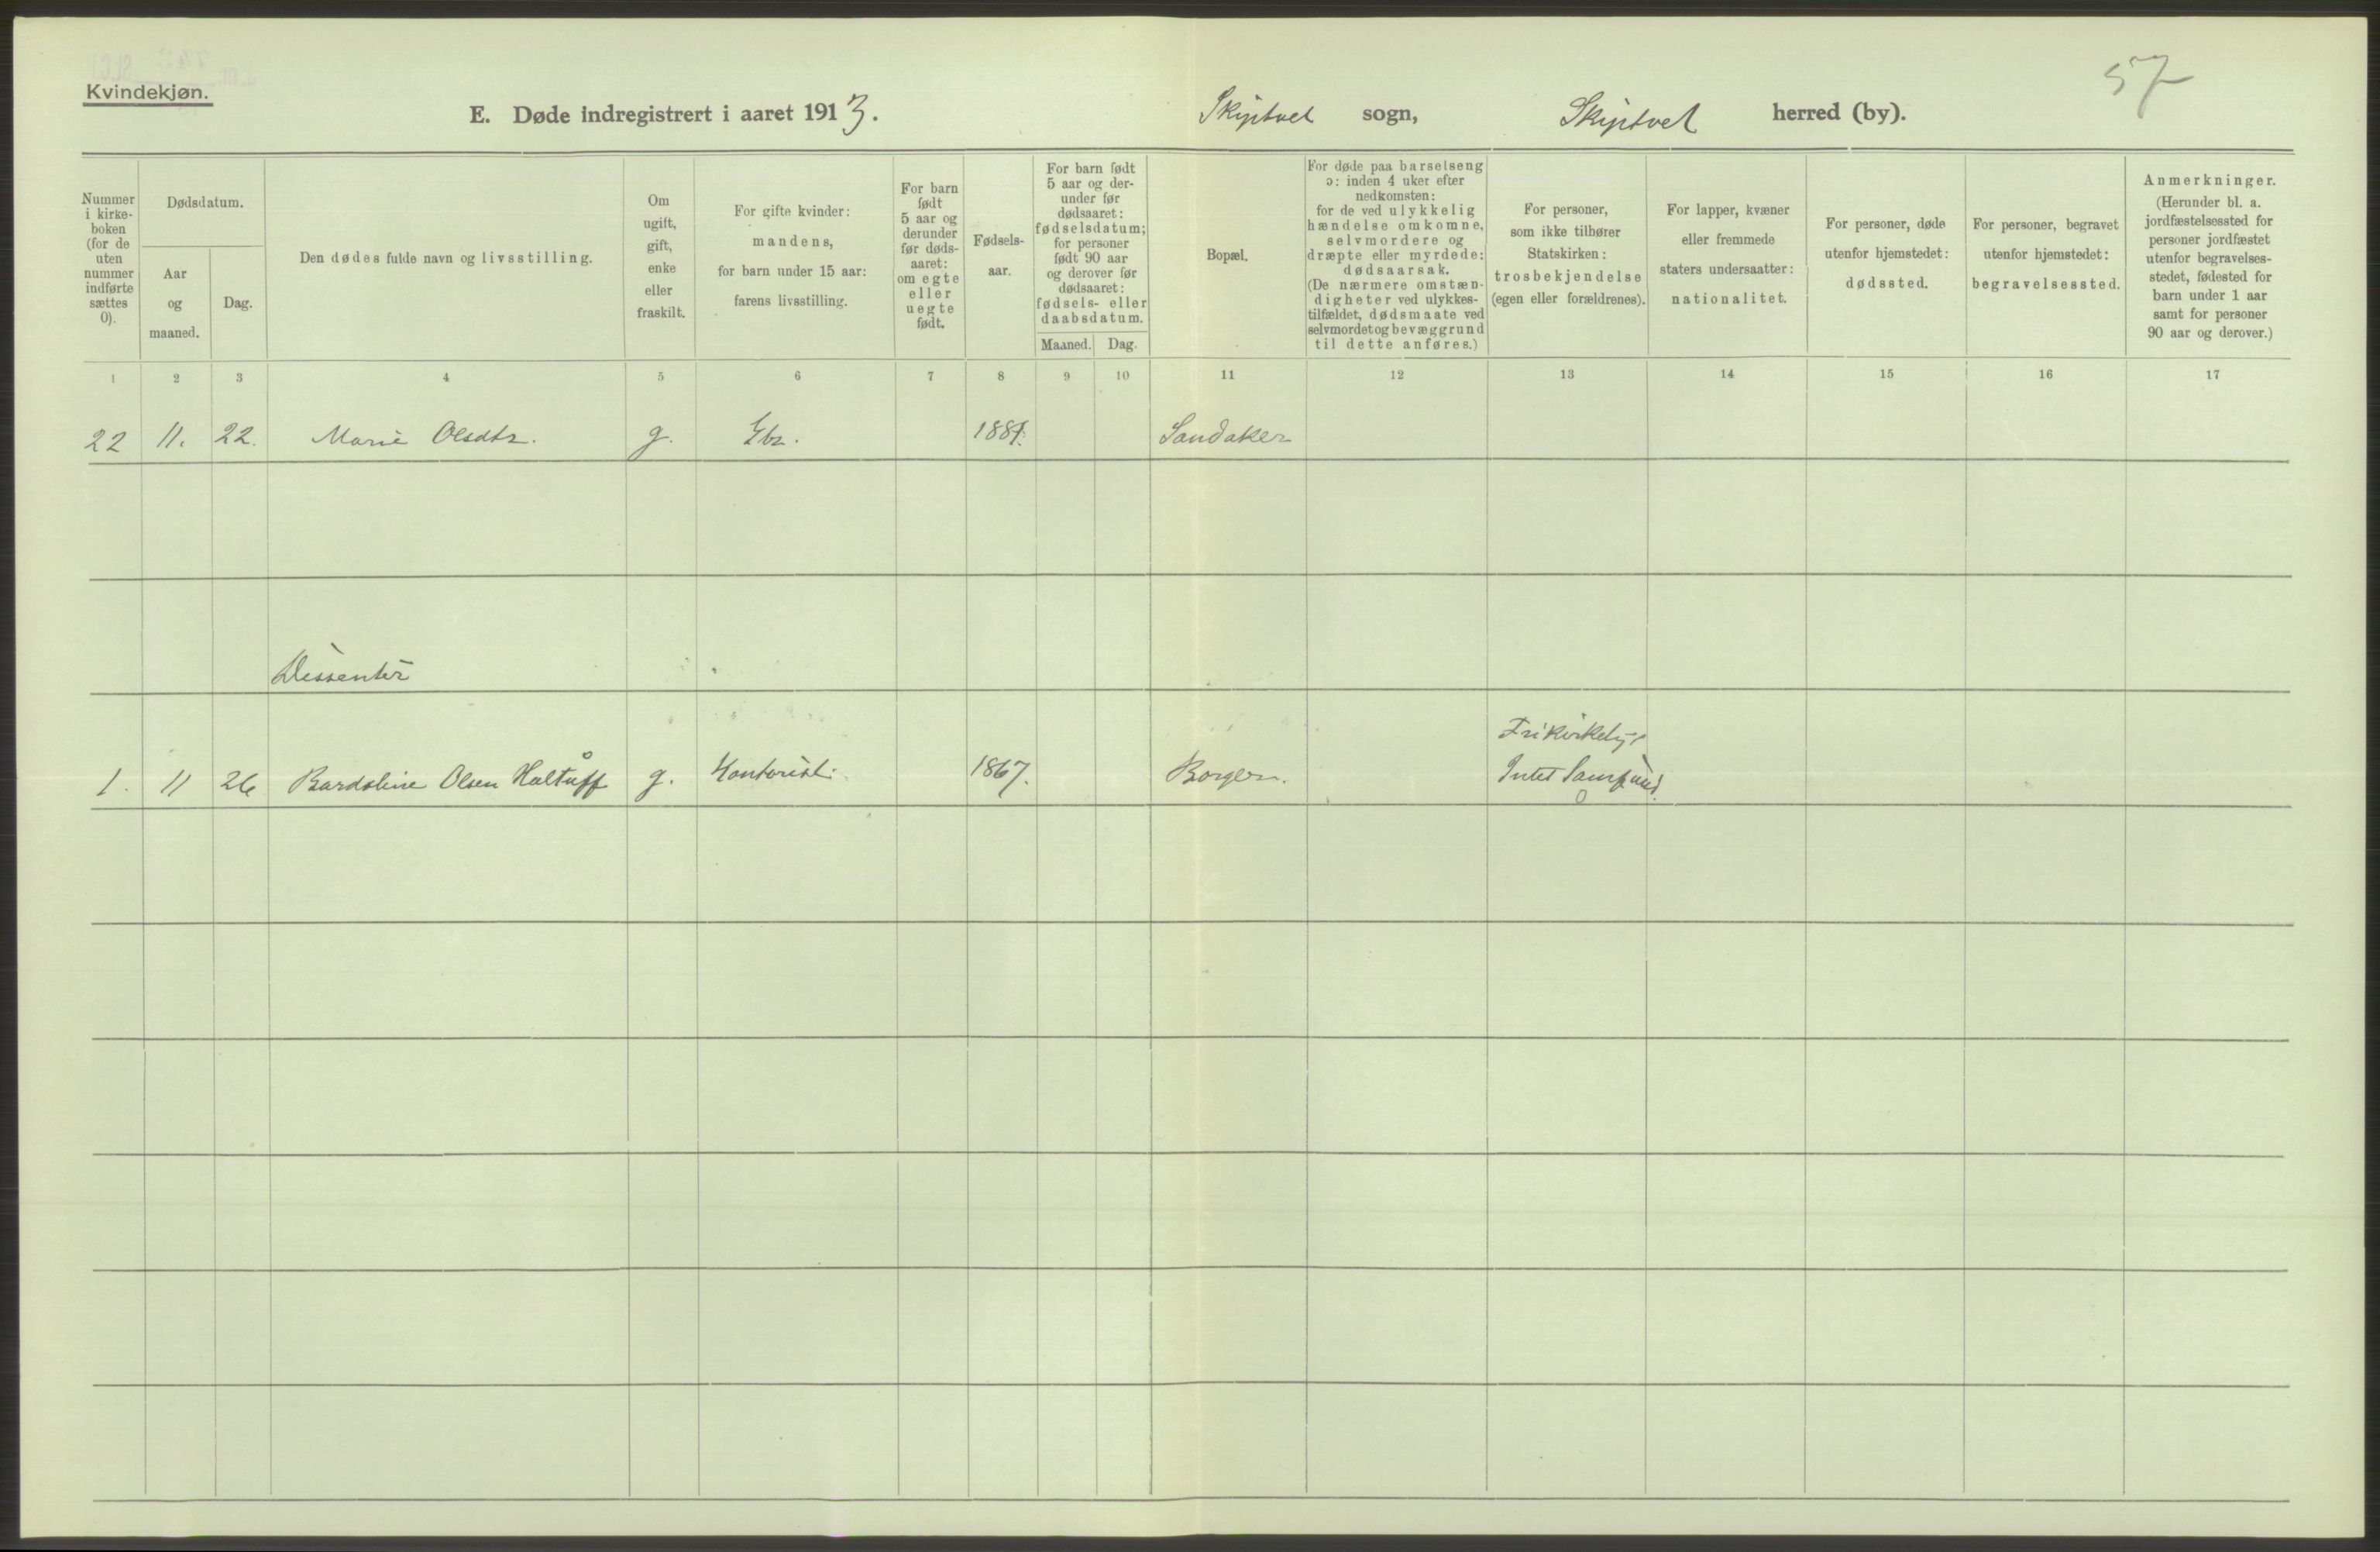 57
Kvindekjøn.
E. Døde indregistrert i aaret 1913. Skiptvet sogn, Skiptvet herred (by).
Nummer i kirke- boken (for de uten nummer indførte sættes 0).
Dødsdatum.
Aar og maaned.
Dag.
Den dødes fulde navn og livsstilling.
Om ugift, gift, enke eller fraskilt.
For gifte kvinder: mandens, for barn under 15 aar: farens livsstilling.
For barn født 5 aar og derunder før døds- aaret: om egte eller uegte født.
Fødsels- aar.
For barn født 5 aar og der- under før dødsaaret: fødselsdatum; for personer født 90 aar og derover før dødsaaret: fødsels- eller daabsdatum.
Maaned. Dag.
Bopæl.
For døde paa barselseng ɔ: inden 4 uker efter nedkomsten: for de ved ulykkelig hændelse omkomne, selvmordere og dræpte eller myrdede: dødsaarsak. (De nærmere omstæn- digheter ved ulykkes- tilfældet, dødsmaate ved selvmordet og bevæggrund til dette anføres.)
For personer, som ikke tilhører Statskirken: trosbekjendelse (egen eller forældrenes).
For lapper, kvæner eller fremmede staters undersaatter: nationalitet.
For personer, døde utenfor hjemstedet: dødssted.
For personer, begravet utenfor hjemstedet: begravelsessted.
Anmerkninger. (Herunder bl. a. jordfæstelsessted for personer jordfæstet utenfor begravelses- stedet, fødested for barn under 1 aar samt for personer 90 aar og derover.)
1 2 3 4 5 6 7 8 9 10 11 12 13 14 15 16 17
22 11. 22. Marie Olsdtr. g. Gbr. Sandaker
Dissenter
1. 11 26 Bardoline Olsen g. Kontorist. 1867. Borgen.
Intet Samfund.